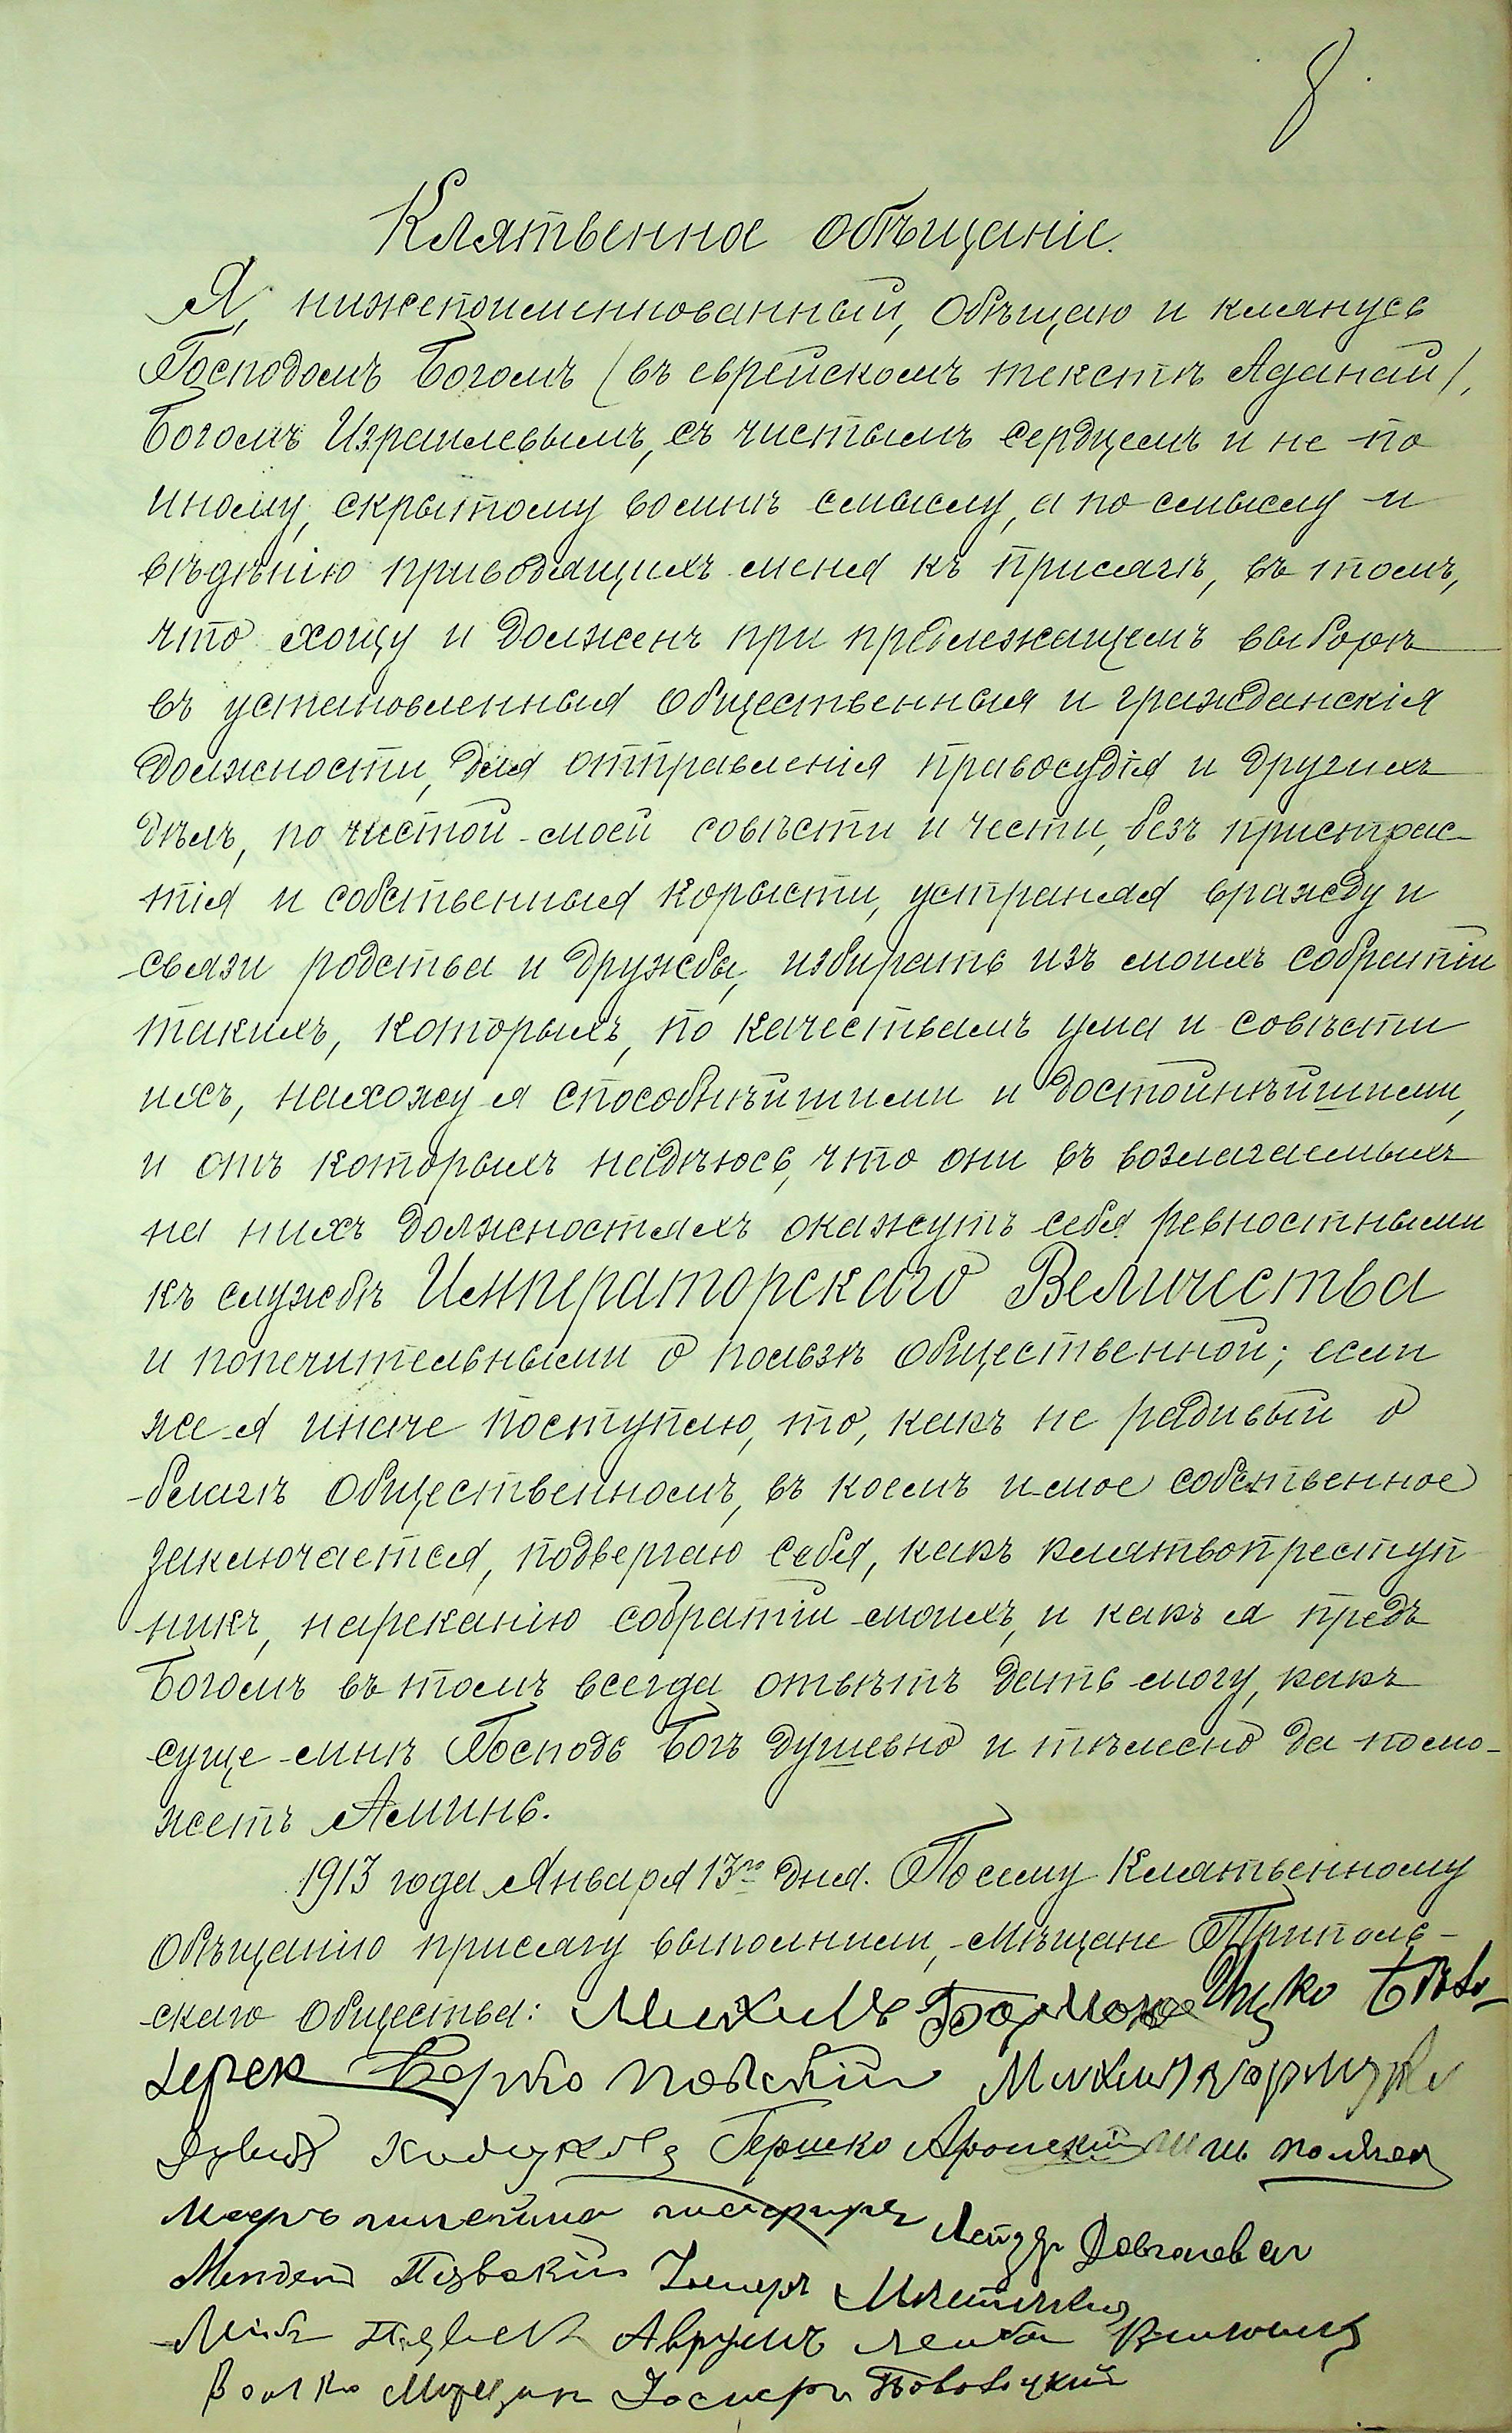 8
Клятвенное обѣщаніе.
Я, нижепоименнованный, обѣщаю и клянусь
Господомъ Богомъ (въ еврейскомъ текстѣ Аданай),
Богомъ Израилевымъ, съ чистымъ сердцемъ и не по
иному, скрытому во мнѣ смыслу, а по смыслу и
вѣдѣнію приводящихъ меня къ присягѣ, въ томъ,
что хощу и долженъ при предлежащемъ выборѣ
въ установленныя общественныя и гражданскія
должности, для отправленія правосудія и другихъ
дѣлъ, по чистой моей совѣсти и чести, безъ пристрас-
тія и собственныя корысти, устраняя вражду и
связи родства и дружбы, избирать изъ моихъ собратій
такихъ, которыхъ, по качествамъ ума и совѣсти
ихъ, нахожу я способнѣйшими и достойнѣйшими,
и отъ которыхъ надѣюсь, что они въ возлагаемыхъ
на нихъ должностяхъ окажутъ себя ревностными
къ службѣ Императорскаго Величества
и попечительными о пользѣ общественной; если
же я иначе поступлю, то, какъ не радивый о
благѣ общественномъ, въ коемъ и мое собственное
заключается, подвергаю себя, какъ клятвопреступ-
никъ, нареканію собратій моихъ, и какъ я предъ
Богомъ въ томъ всегда отвѣтъ дать могу, какъ
суще мнѣ Господь Богъ душевно и тѣлесно да помо-
жетъ Аминь.
1913 года Января 13го дня. По сему Клятвенному
обѣщанію присягу выполнили, мѣщане Триполь-
скаго общества: Михиль Ицко
Берко
Гершко Аронскій
Лейзер
Мендель
Аврумъ Лейба
Волко Иосиеръ